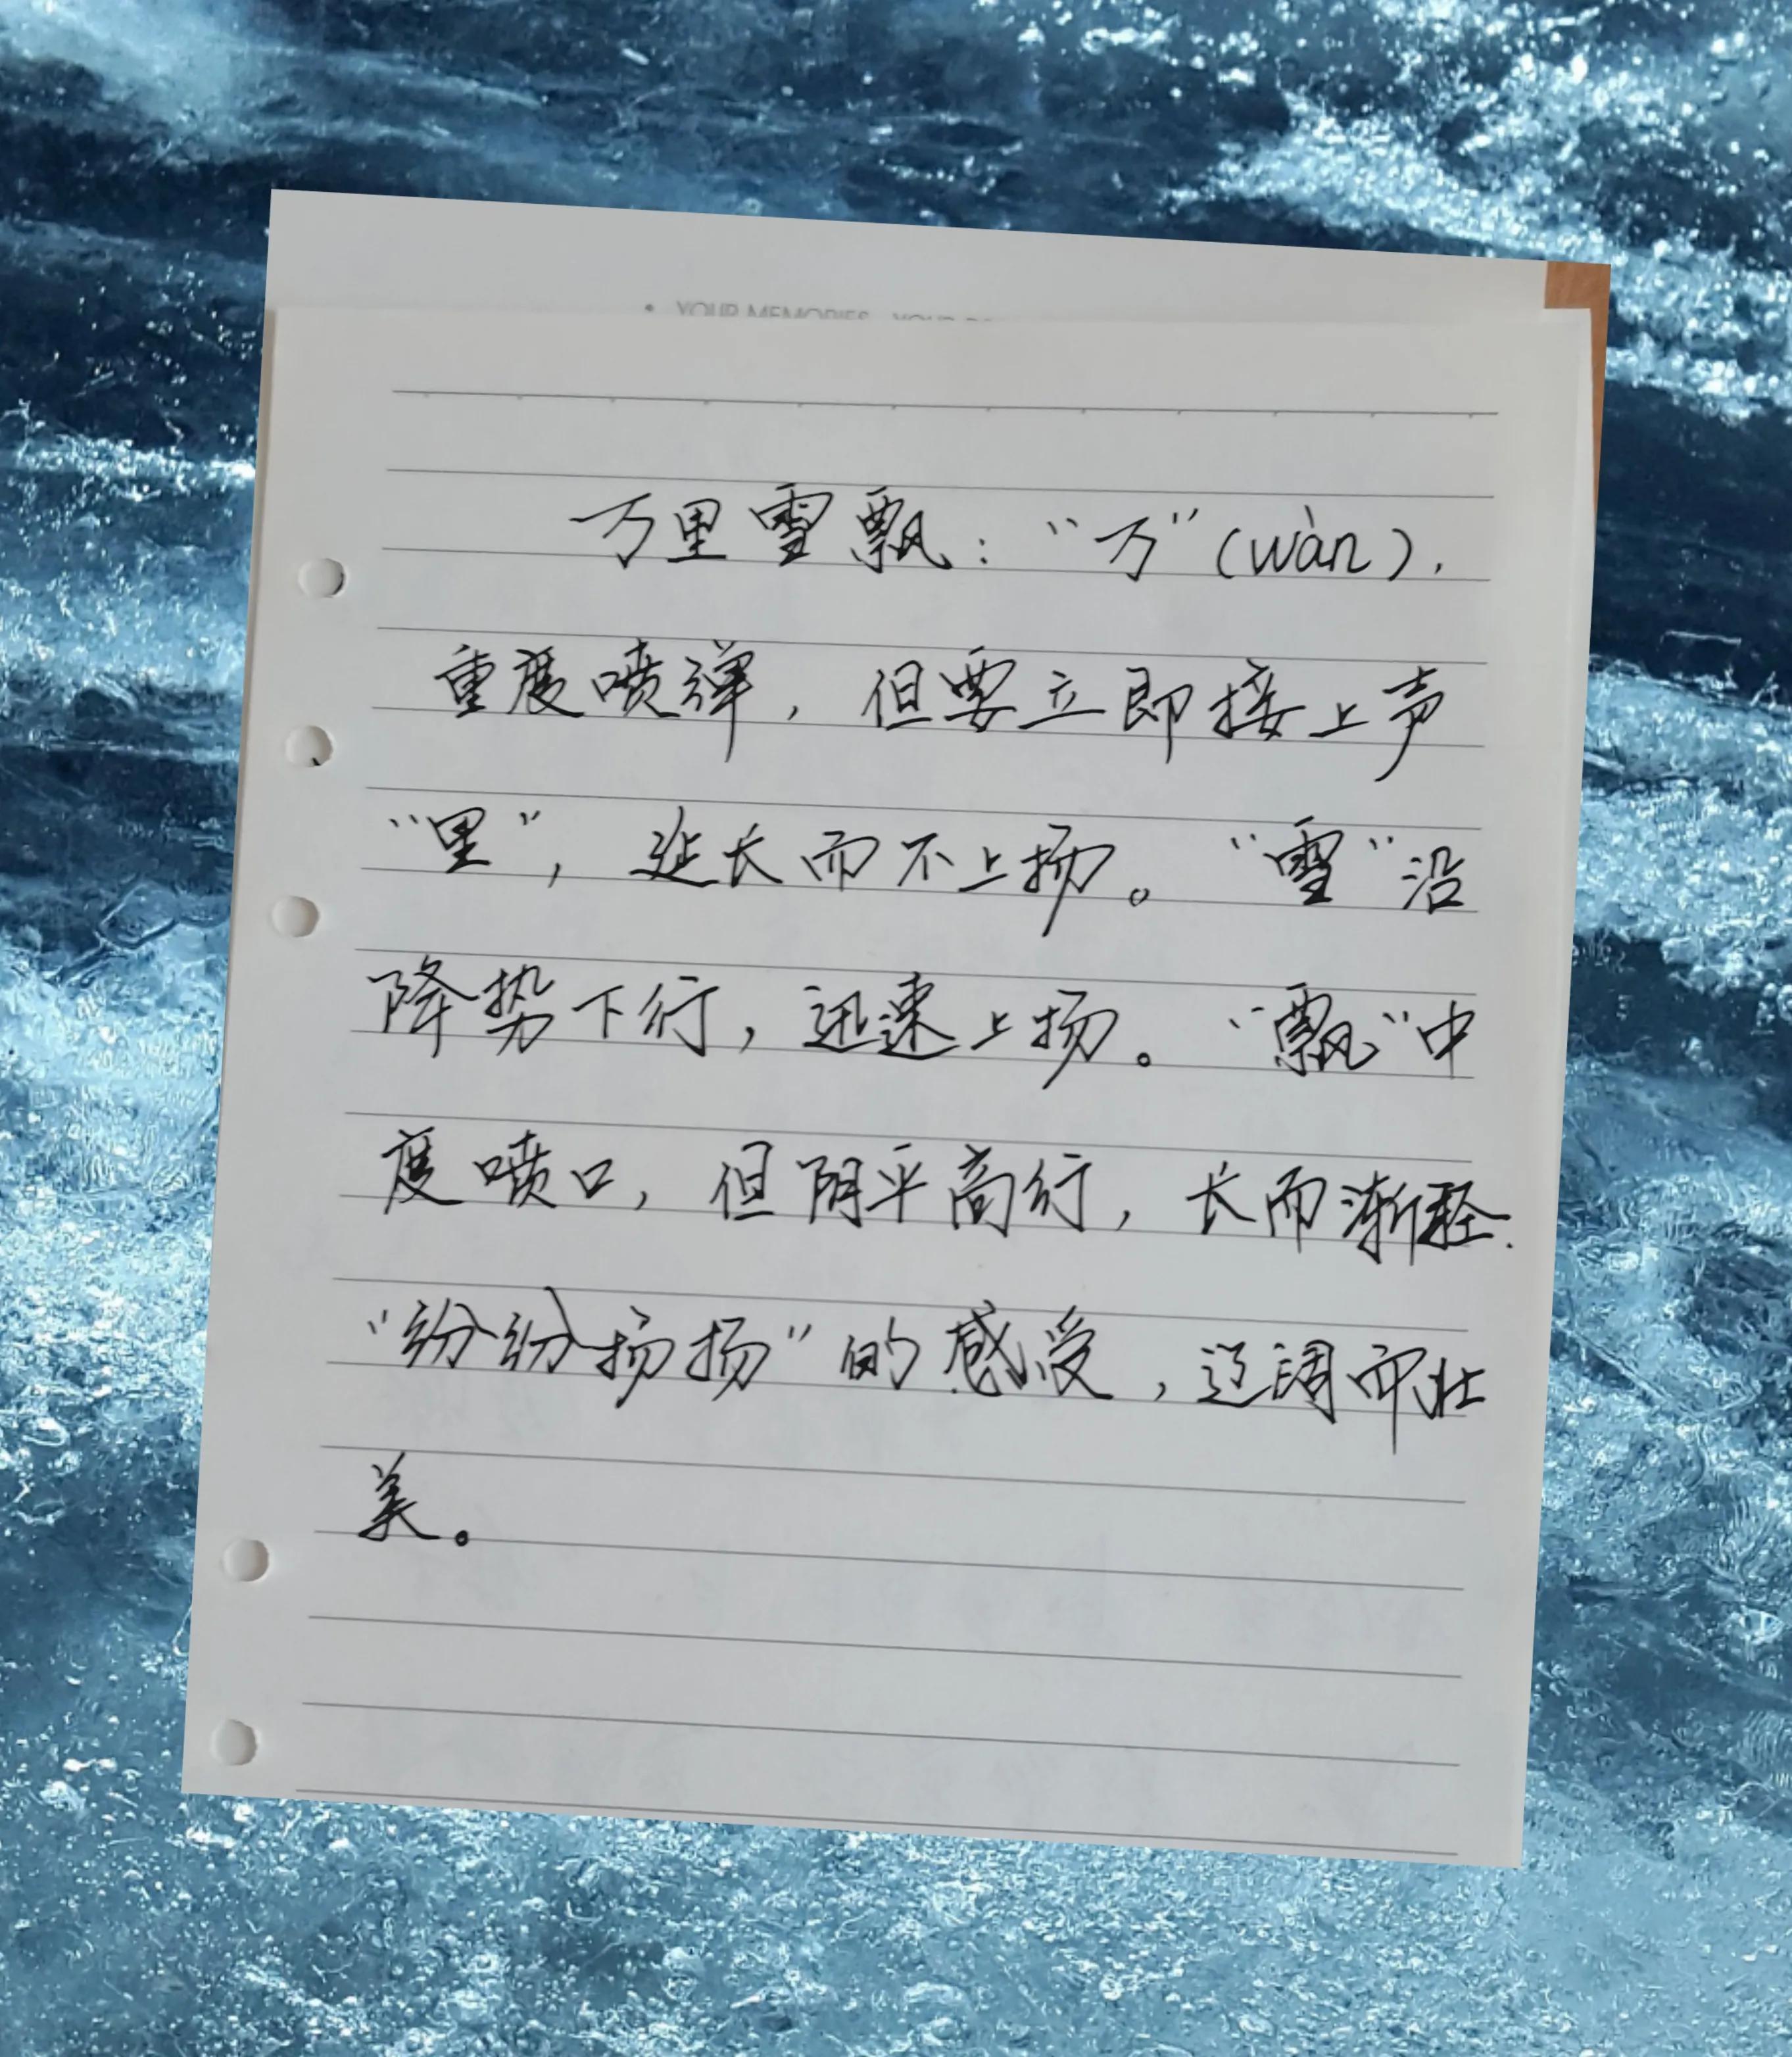 YOUR MEMORIES
万里雪飘：“万”(wàn)，
重度喷弹，但要立即接上声
“里”，延长而不上扬。“雪”沿
降势下行，迅速上扬。“飘”中
度喷口，但阴平高行，长而渐轻.
“纷纷扬扬”的感受，辽阔而壮
美。